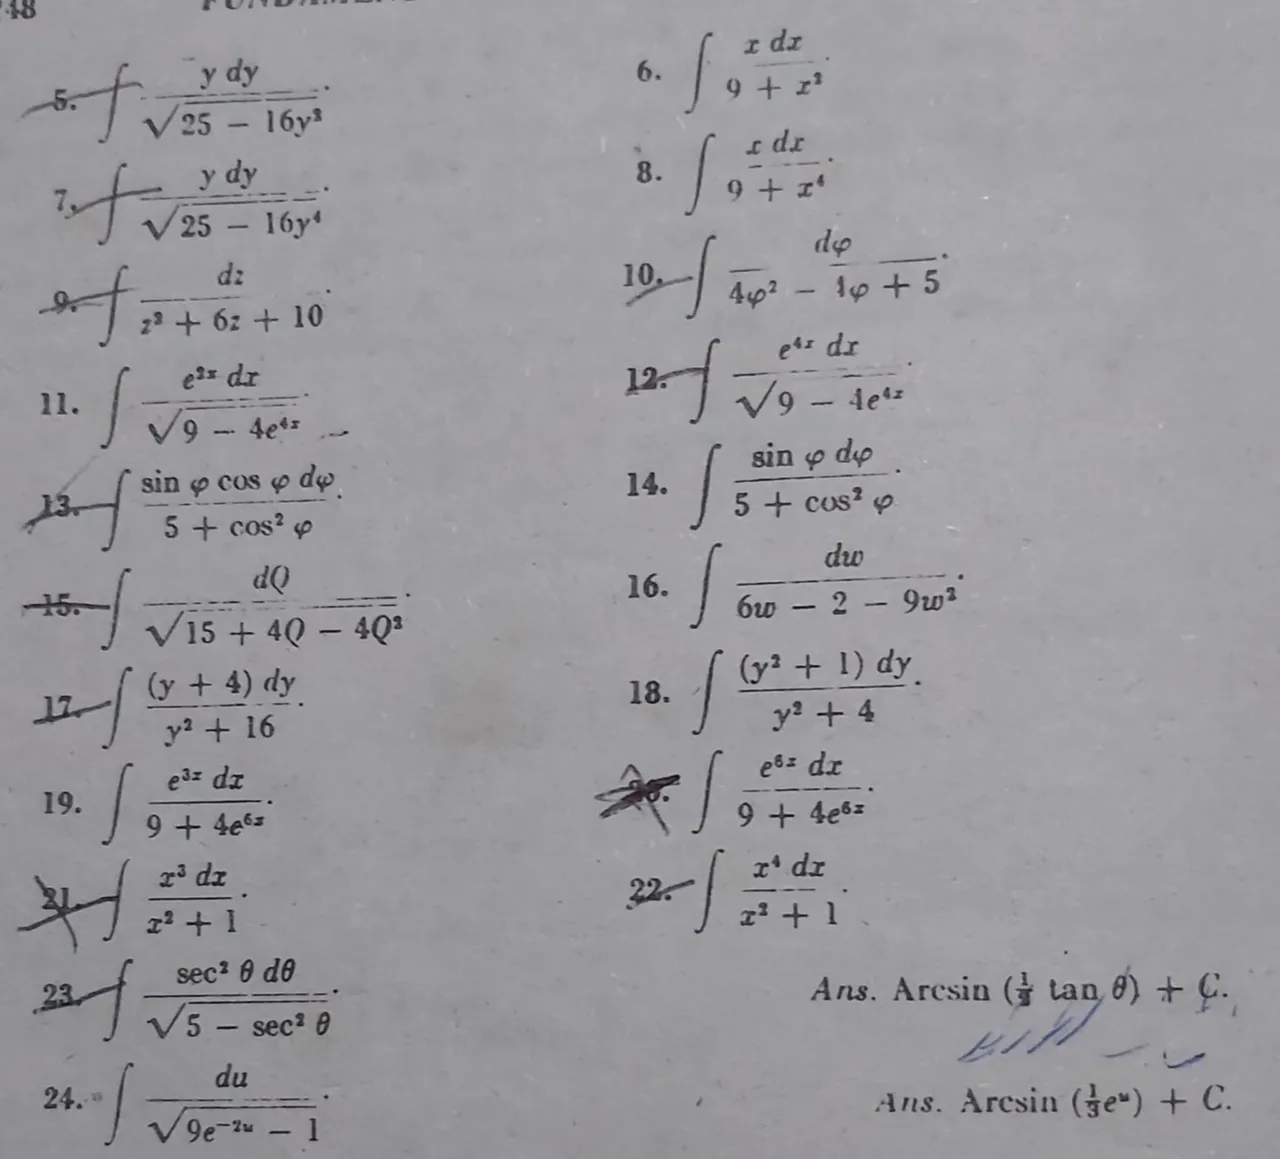 48
5. ∫ y dy / √(25 − 16y²).
6. ∫ x dx / (9 + x²).
7. ∫ y dy / √(25 − 16y⁴).
8. ∫ x dx / (9 + x⁴).
9. ∫ dz / (z² + 6z + 10).
10. ∫ dφ / (4φ² − 4φ + 5).
11. ∫ e²ˣ dx / √(9 − 4e⁴ˣ).
12. ∫ e⁴ˣ dx / √(9 − 4e⁴ˣ).
13. ∫ sin φ cos φ dφ / (5 + cos² φ).
14. ∫ sin φ dφ / (5 + cos² φ).
15. ∫ dQ / √(15 + 4Q − 4Q²).
16. ∫ dw / (6w − 2 − 9w²).
17. ∫ (y + 4) dy / (y² + 16).
18. ∫ (y² + 1) dy / (y² + 4).
19. ∫ e³ˣ dx / (9 + 4e⁶ˣ).
20. ∫ e⁶ˣ dx / (9 + 4e⁶ˣ).
21. ∫ x³ dx / (x² + 1).
22. ∫ x⁴ dx / (x² + 1).
23. ∫ sec² θ dθ / √(5 − sec² θ).
Ans. Arcsin (½ tan θ) + C.
24. ∫ du / √(9e⁻²ᵘ − 1).
Ans. Arcsin (⅓eᵘ) + C.